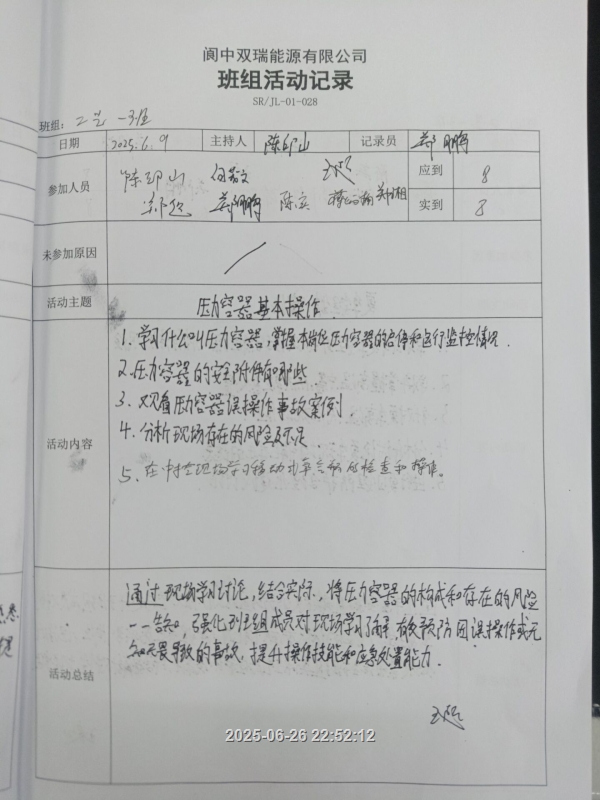 阆中双瑞能源有限公司
班组活动记录
SR/JL-01-028
班组：工艺一班
日期 2025.6.9 主持人 陈邱山 记录员 郑鹏
参加人员 陈邱山 应到 8
郑鹏 陈实 实到 8
未参加原因
活动主题 压力容器基本操作
1. 学习什么叫压力容器，掌握本岗位压力容器的 和运行监控情况.
2. 压力容器的安全附件有哪些
3. 观看压力容器误操作事故案例
4. 分析现场存在的风险及不足.
活动内容
5. 在中控现场学习 的检查和操作。
通过现场学习讨论，结合实际，将压力容器的构成和存在的风险
一一告知，强化班组成员对现场学习了解，有效预防因误操作或无
知无畏导致的事故，提升操作技能和应急处置能力.
活动总结
2025-06-26 22:52:12